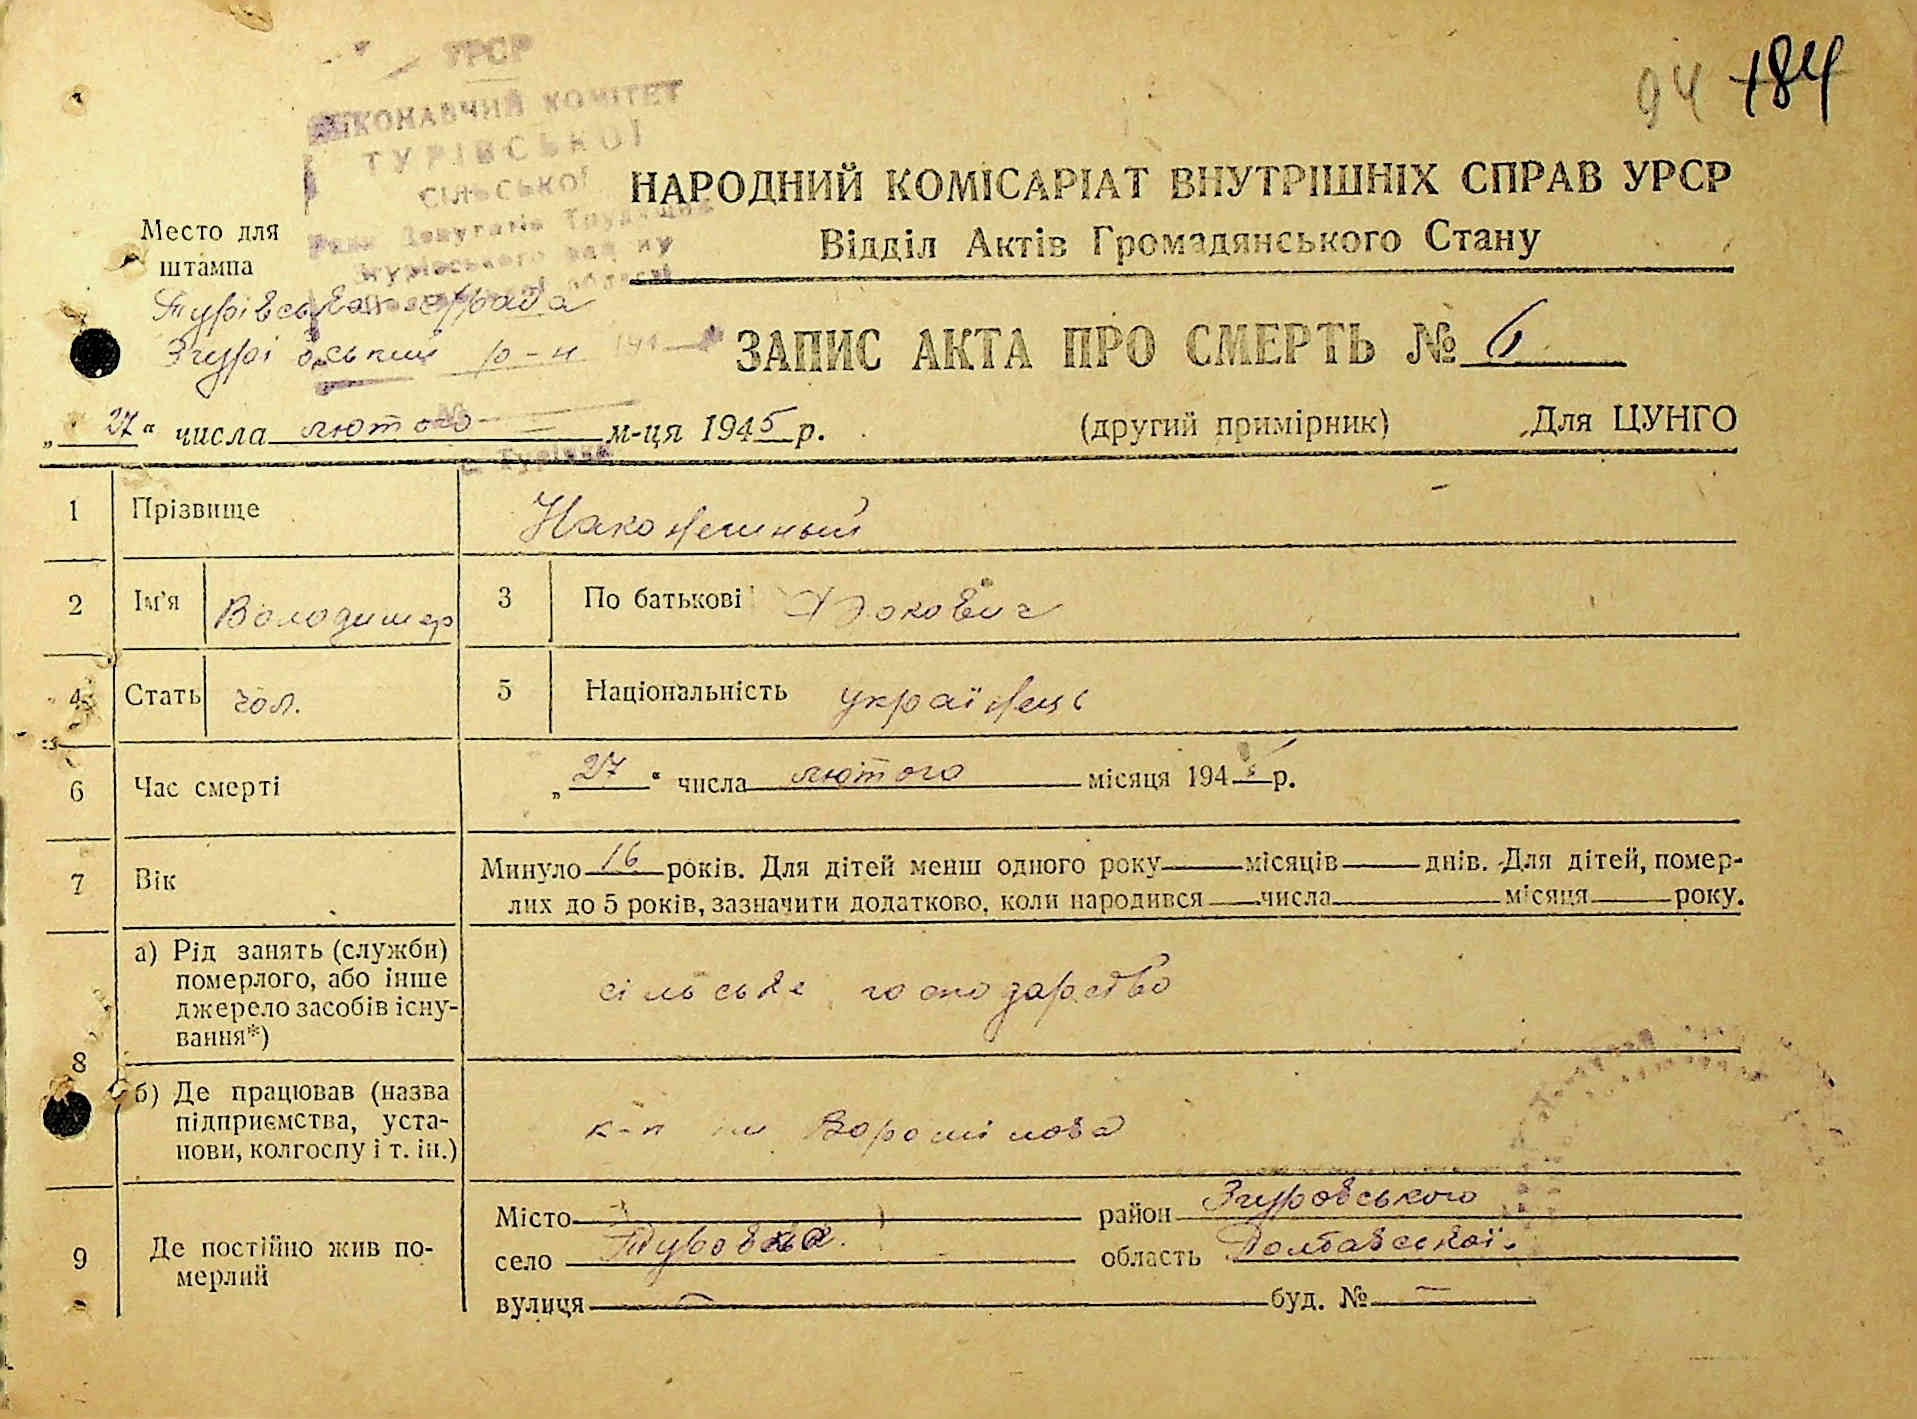 94 184
УРСР
ВИКОНАВЧИЙ КОМІТЕТ
ТУРІВСЬКОЇ
СІЛЬСЬКОЇ
Ради Депутатів Трудящих
Згурівського району
області
НАРОДНИЙ КОМІСАРІАТ ВНУТРІШНІХ СПРАВ УРСР
Відділ Актів Громадянського Стану
Место для
штампа
Турівська с/рада
Згурівський р-н
ЗАПИС АКТА ПРО СМЕРТЬ № 6
„27“ числа лютого м-ця 1945 р. (другий примірник) Для ЦУНГО
с. Турівка
1 Прізвище Наконечный
2 Ім'я Володимир 3 По батькові
4 Стать чол. 5 Національність українець
6 Час смерті „27“ числа лютого місяця 194 р.
7 Вік Минуло 16 років. Для дітей менш одного року місяців днів. Для дітей, помер-
лих до 5 років, зазначити додатково, коли народився числа місяця року.
8 а) Рід занять (служби)
померлого, або інше
джерело засобів існу-
вання*) сільське господарство
б) Де працював (назва
підприємства, уста-
нови, колгоспу і т. ін.) к-п ім Ворошілова
9 Де постійно жив по-
мерлий
Місто — район Згуровського
село Туровка. область Полтавської.
вулиця — буд. № —